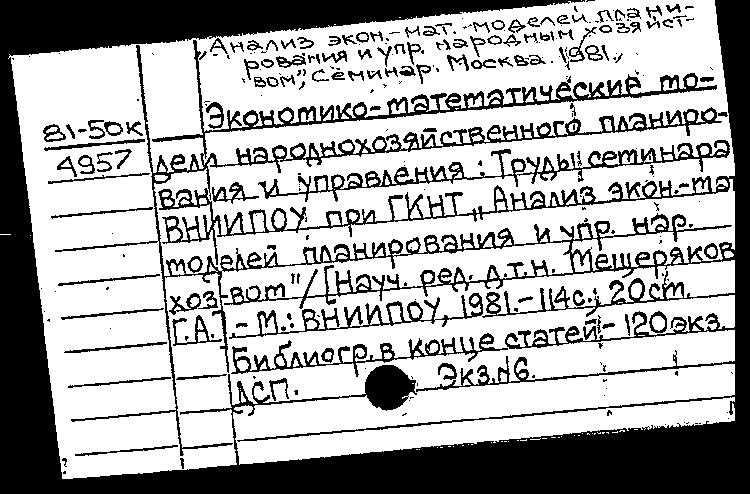 „Анализ экон.-мат. моделей плани-
рования и упр. народным хозяйст-
вом", Семинар. Москва. 1981.,
Экономико-математические мо-
81-50к
4957
дели народнохозяйственного планиро-
вания и управления : Труды семинара
ВНИИПОУ при ГКНТ „Анализ экон.-мат
моделей планирования и упр. нар.
хоз-вом"/[Науч. ред. д.т.н. Мещеряков
Г.А.]. - М.: ВНИИПОУ, 1981.- 114с.; 20ст.
Библиогр. в конце статей.- 120экз.
ДСП. Экз.№6.